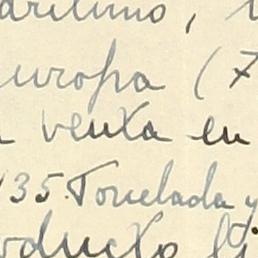 aritimo,
europa (7
venta en
135. Tonelada y
oducto li